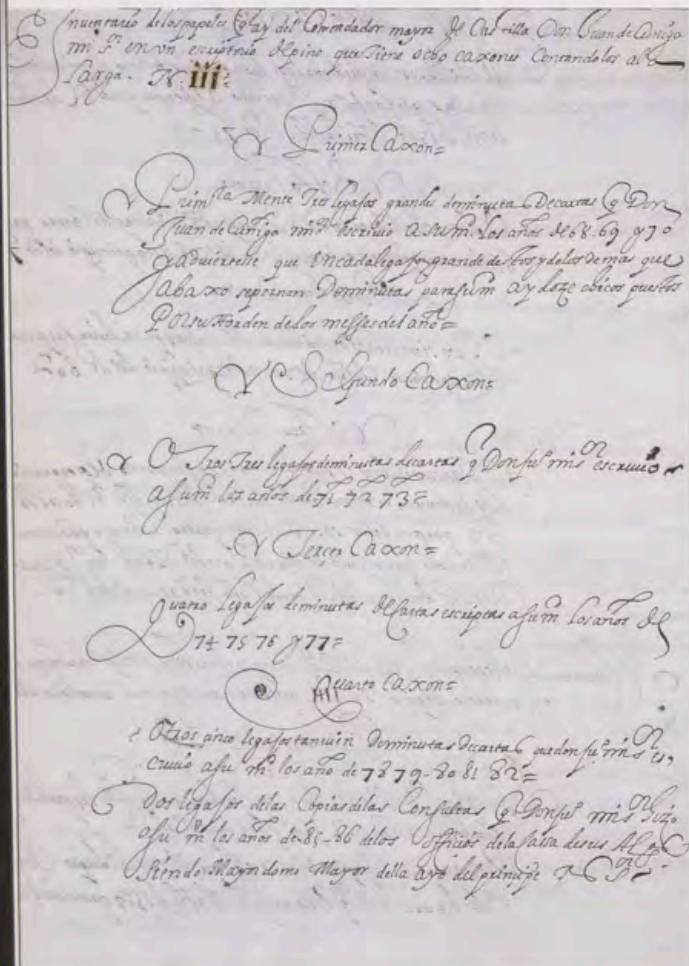 Inventario delos papeles q̃ ay del Comendador mayor de Castilla Don Juan de Cuñiga
mi s.r en vn escriptorio de pino que tiene ocho caxones Contandolos ala
larga. N. iii
Primer Caxon=
Primeramente Tres legajos grandes deminutas de cartas q̃ Don
Juan de Cuñiga mi s.r escriuio a su m. los años de 68. 69 y 70
y aduiertesse que en cada legajo grande destos y delos demas que
abaxo se pornan Deminutas para su m ay doze chicos puestos
Por su Horden delos messes del año=
Segundo Caxon=
Otros Tres legajos deminutas de cartas q̃ Don Ju.o mi s.or escriuio
a su m los años de 71 72 73=
Tercer Caxon=
Quatro legajos deminutas de Cartas escriptas a su m los años de
74 75 76 y 77=
Quarto Caxon=
Otros cinco legajos tanuien Deminutas de cartas que don Ju.o mi s.or es,
criuio a su m. los año de 78 79-80 81 82=
Dos legajos delas Copias delas Consultas q̃ Don Ju.o mi s.or hizo
a su m los años de 85-86 delos officios dela cassa de sus Al.as
Siendo Mayordomo Mayor della ayo del principe N. S.or